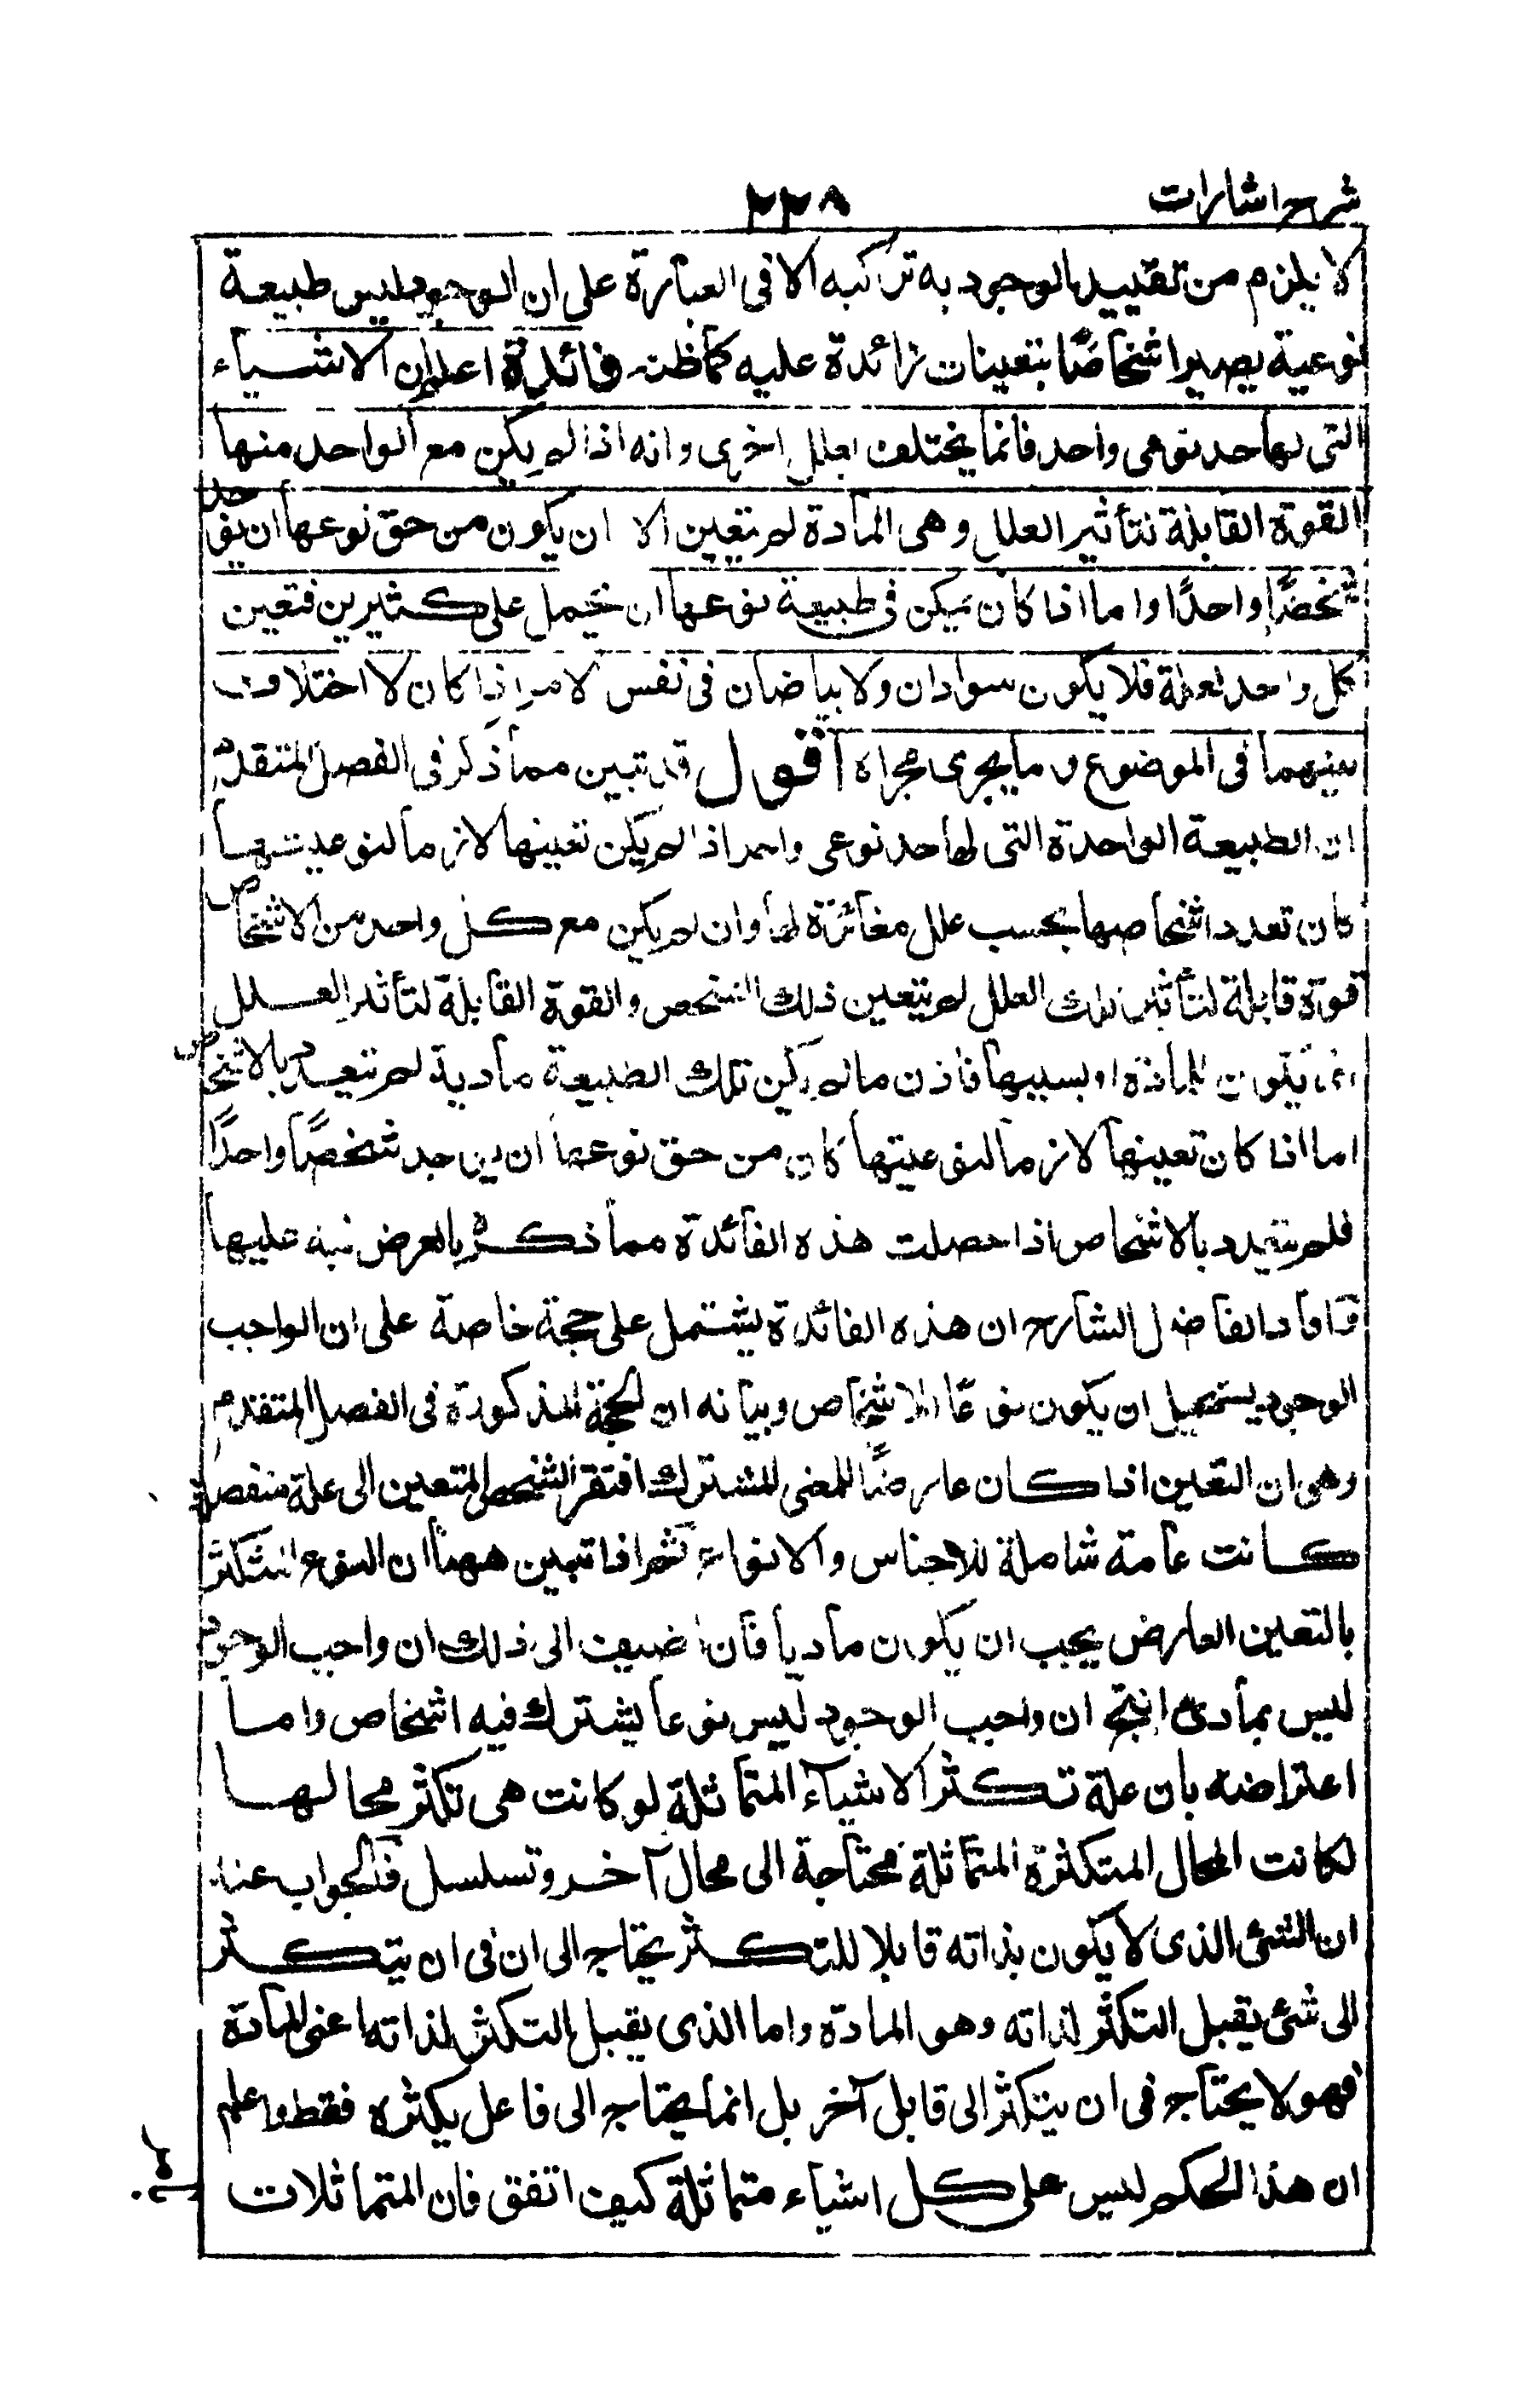 شرح اشارات
٢٢٨
لا يلزم من تقييد الوجود به تركبه الا فى العبارة على ان الوجود ليس طبيعة
نوعية يصير اشخاصًا بتعينات زائدة عليه كما ظن فائدة اعلم ان الاشياء
التى لها حد نوعى واحد فانما يختلف بعلل اخرى وانه اذا لم يكن مع الواحد منها
القوة القابلة لتأثير العلل وهى المادة لم يتعين الا ان يكون من حق نوعها ان يوجد
شخصًا واحدًا واما اذا كان يمكن فى طبيعة نوعها ان تحمل على كثيرين فتعين
كل واحد لعلة فلا يكون سوادان ولا بياضان فى نفس الامر اذا كان لا اختلاف
بينهما فى الموضوع وما يجرى مجراه اقول قد تبين مما ذكر فى الفصل المتقدم
ان الطبيعة الواحدة التى لها حد نوعى واحد اذا لم يكن تعينها لازما لنوعيتها
كان تعدد اشخاصها بحسب علل مغائرة لها وان لم يكن مع كل واحد من الاشخاص
قوة قابلة لتأثير تلك العلل لم يتعين ذلك الشخص والقوة القابلة لتأثير العلل
انما يكون للمادة او بسببها فاذن ما لم يكن تلك الطبيعة مادية لم تتعدد بالاشخاص
اما اذا كان تعينها لازما لنوعيتها كان من حق نوعها ان يوجد شخصًا واحدًا
فلم يتعدد بالاشخاص اذا حصلت هذه الفائدة مما ذكره بالعرض نبه عليها
الفاضل الشارح ان هذه الفائدة يشتمل على حجة خاصة على ان الواجب
الوجود يستحيل ان يكون نوعًا لاشخاص وبيانه ان الحجة المذكورة فى الفصل المتقدم
وهى ان التعين اذا كان عارضًا للمعنى المشترك افتقر الشخص المتعين الى علة منفصلة
كانت عامة شاملة للاجناس والانواع ثم اذا تبين ههنا ان النوع المتكثر
بالتعين العارض يجب ان يكون ماديا فان اضيف الى ذلك ان واجب الوجود
ليس بمادى انتج ان واجب الوجود ليس نوعا يشترك فيه اشخاص واما
اعتراضه بان علة تكثر الاشياء المتماثلة لو كانت هى تكثر محالها
لكانت المحال المتكثرة المتماثلة محتاجة الى محال آخر وتسلسل فالجواب عنه
ان الشئ الذى لا يكون بذاته قابلا للتكثر يحتاج الى ان فى ان يتكثر
الى شئ يقبل التكثر لذاته وهو المادة واما الذى يقبل التكثر لذاته اعنى المادة
فهو لا يحتاج فى ان يتكثر الى قابل آخر بل انما يحتاج الى فاعل يكثره فقط واعلم
ان هذا الحكم ليس على كل اشياء متماثلة كيف اتفق فان المتماثلات